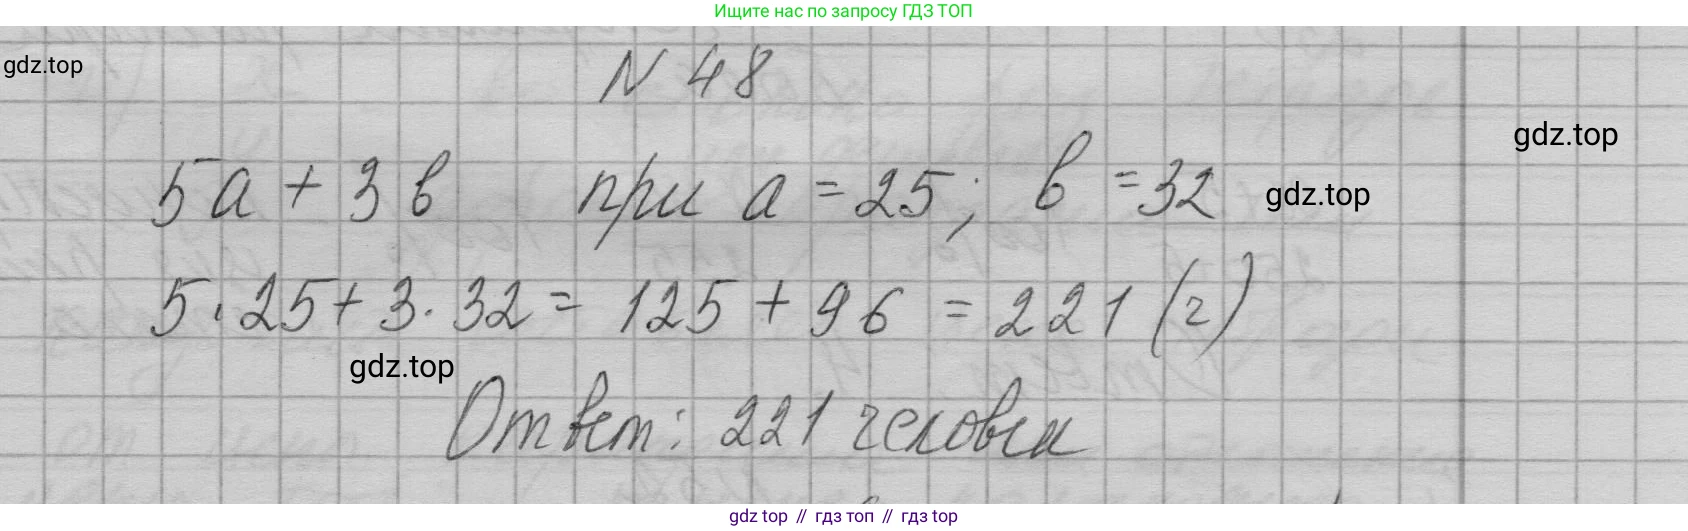 Ищите нас по запросу ГДЗ ТОП
gdz.top
N 48
gdz.top
5a + 3b при a = 25; b = 32
gdz.top
5·25 + 3·32 = 125 + 96 = 221 (ч)
gdz.top
Ответ: 221 человек
gdz top // гдз топ // гдз top